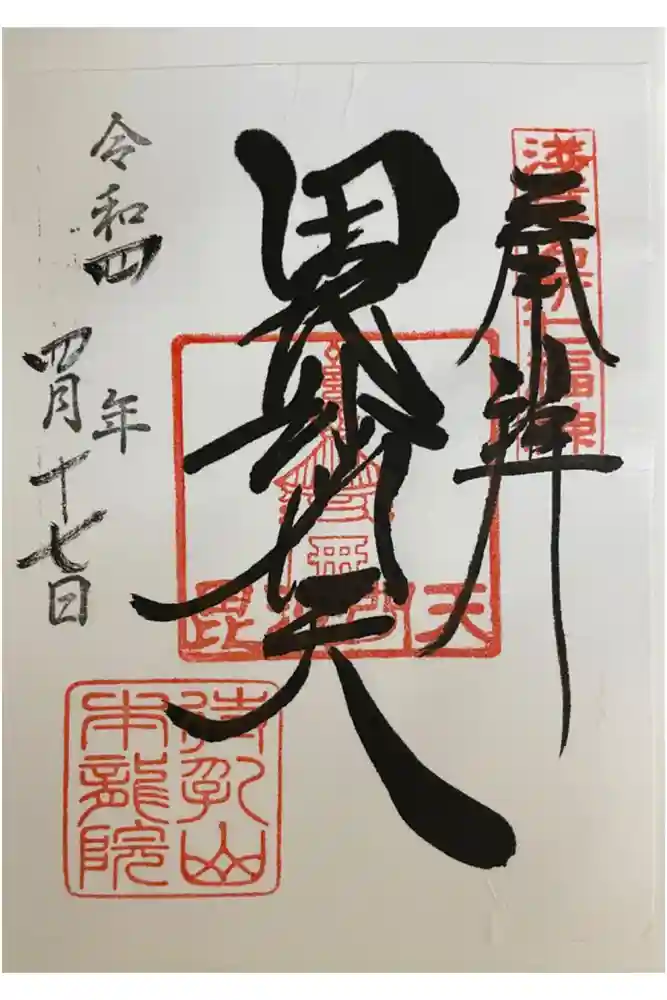 浅草名所七福神
奉拝
毘沙門天
毘沙門天
令和四年
四月十七日
待乳山
本龍院